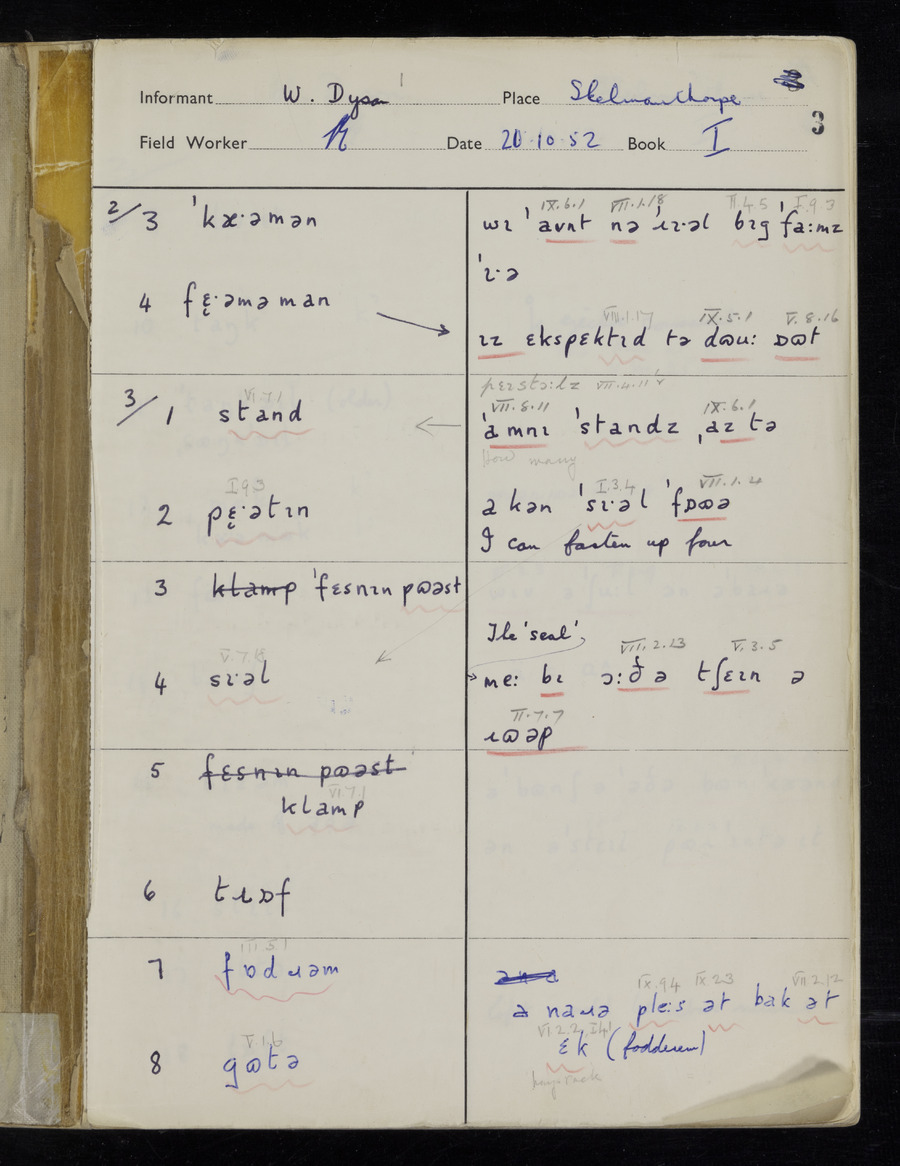 Informant W. Dyson Place Skelmanthorpe
3
Field Worker Date 20.10.52 Book I
2/3 ˈkæˑəmən
IX.6.1 VII.1.18 II.4.5 I.9.3
wɪ ˈavnt nə ˈɹɪˑəl bɪg ˈfaːmz
ˈɪˑə
4 fɛ̨ˑəməman
VIII.1.17 IX.5.1 V.8.16
ɪz ɛkspɛktɪd tə dɷuː ɒɷt
3/1 stand
VI.7.1
pɛɪstɔːlz VII.4.11
VII.8.11 IX.6.1
ˈamnɪ ˈstandz ˌaz tə
how many
2 pɛ̨ˑətɪn
I.9.3
I.3.4 VII.1.4
a kən ˈsɪˑəl ˈfɒɷə
I can fasten up four
3 klamp ˈfɛsnɪn pɷəst
The 'seal'
4 sɪˑəl
V.7.18
VII.2.13 V.3.5
meː bɪ ɔːð̞ə tʃɛɪn ə
II.7.7
ɹɷəp
5 fɛsnɪn pɷəst
VI.7.1
klamp
6 tɹɒf
7 fɒdɹəm
III.5.1
ənə
IX.9.4 IX.2.3 VII.2.12
ə naɹə pleːs ət bak ət
VI.2.2 I.4.1
ɛk (fodderum)
hay-rack
8 gɷtə
V.1.6